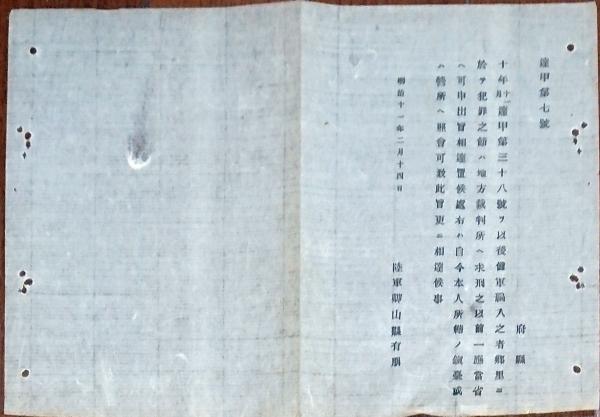 達甲第七號
府縣
十年十二月達甲第三十八號ヲ以後備軍編入之者鄕里ニ
於テ犯罪之節ハ地方裁判所ヘ求刑之以前一應當省
ヘ可申出旨相達置候處右ハ自今本人所轄ノ鎭臺或
ハ營所ヘ照會可致此旨更ニ相達候事
明治十一年二月十四日
陸軍卿山縣有朋